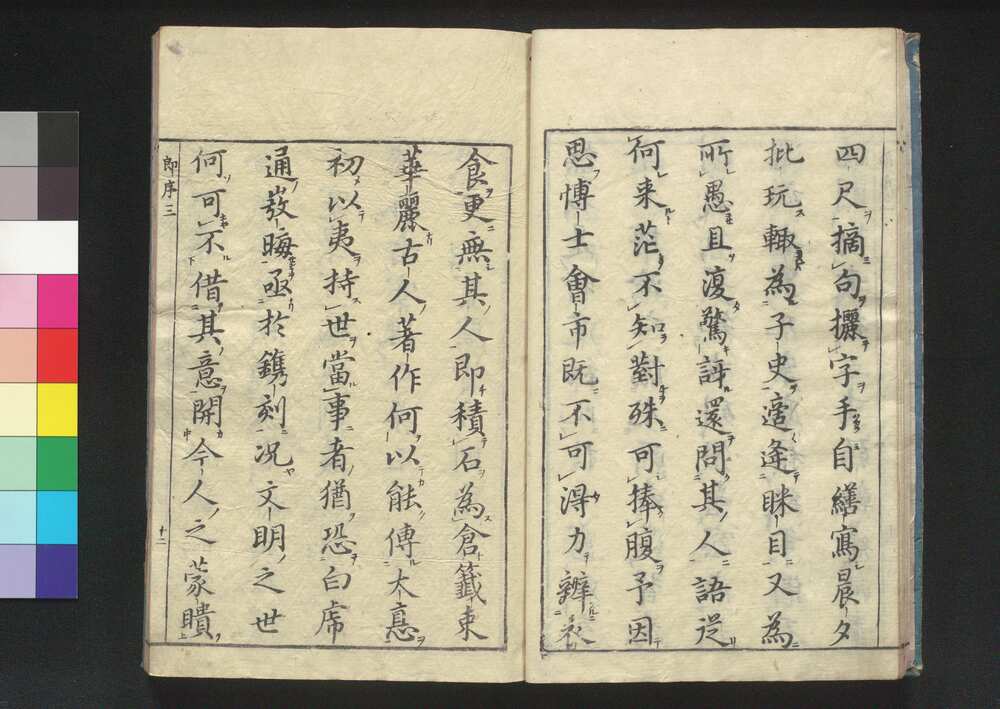 四尺摘句攦字手自繕寫晨夕
批玩輙為子史適逢眯目又為
所愚且復驚訝還問其人語從
何来茫不知對殊可捧腹予因
思愽士會市既不可得力辧衣
食更無其人即積石為倉籖束
華麗古人著作何以能傳太息
初以夷持世當事者猶恐白席
通敎晦亟於鐫刻况文明之世
何可不借其意開今人之蒙瞶
即序三
十二